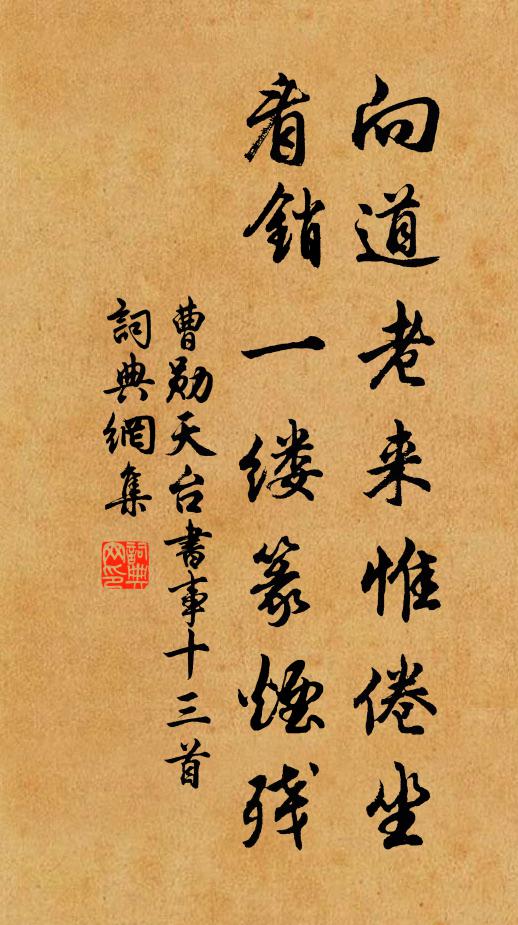 向道老来惟倦坐
看销一缕篆烟残
曹勋天台書事十三首
詞典網集
詞典网印